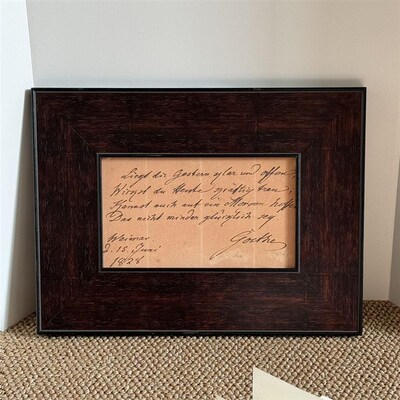 Liegt dir Gestern klar und offen,
Wirkst du Heute kräftig frei;
Kannst auch auf ein Morgen hoffen
Das nicht minder glücklich sey
Weimar
d. 15. Juni
1828
Goethe